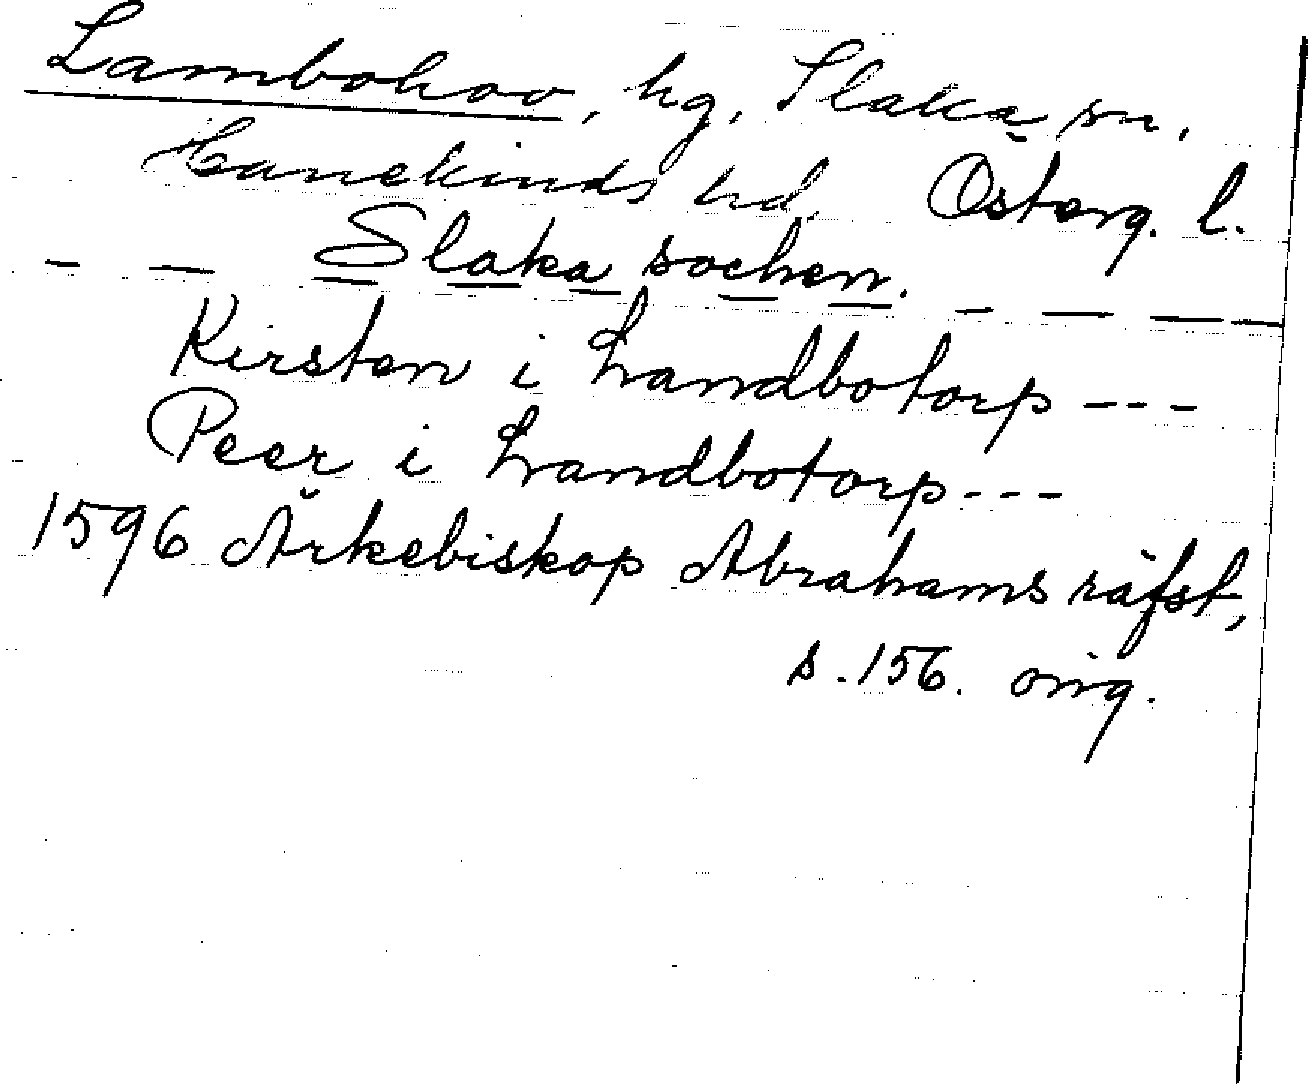 Lambohov, hg, Slaka sn,
Hanekinds hd. Österg. l.
– – Slaka sochen. – – – –
Kirsten i Landbotorp ---
Peer i Landbotorp ---
1596 Ärkebiskop Abrahams räfst,
s. 156. orig.